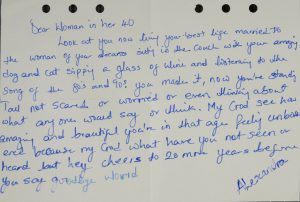 Dear Woman in her 40
Look at you now living your best life married to
the woman of your dreams sitting in the couch with your amazing
dog and cat sipping a glass of Wine and listening to the
song of the 80s and 90s you made it, now you're standing
Tall not scared or worried or even thinking about
what any one would say or think. My God see how
amazing and beautiful you're in that age feeling
because my God what have you not seen or
heard but hey cheers to 20 more years before
you say goodbye world